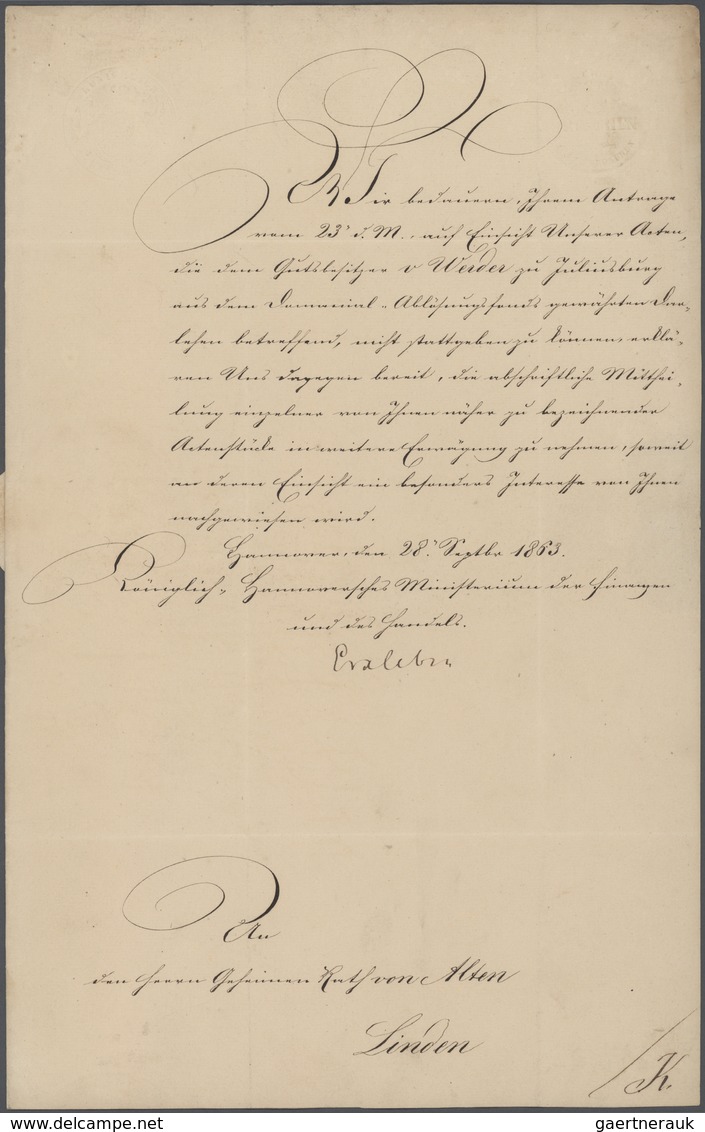 Wir bedauern, Ihrem Antrage
vom 23' d. M., auf Einsicht Unserer Acten,
die dem Gutsbesitzer v Werder zu Juliusburg
aus dem Domanial-Ablösungsfonds gewährten Dar-
lehen betreffend, nicht stattgeben zu können, erklä-
ren Uns dagegen bereit, die abschriftliche Mitthei-
lung einzelner von Ihnen näher zu bezeichnender
Actenstücke in weitere Erwägung zu nehmen, soweit
an deren Einsicht ein besonders Interesse von Ihnen
nachgewiesen wird.
Hannover, den 28' Septbr 1863.
Königlich-Hannoversches Ministerium der Finanzen
und des Handels.
Erxleben
An
den Herrn Geheimen Rath von Alten
Linden
K.
delcampe.net
gaertnerauk